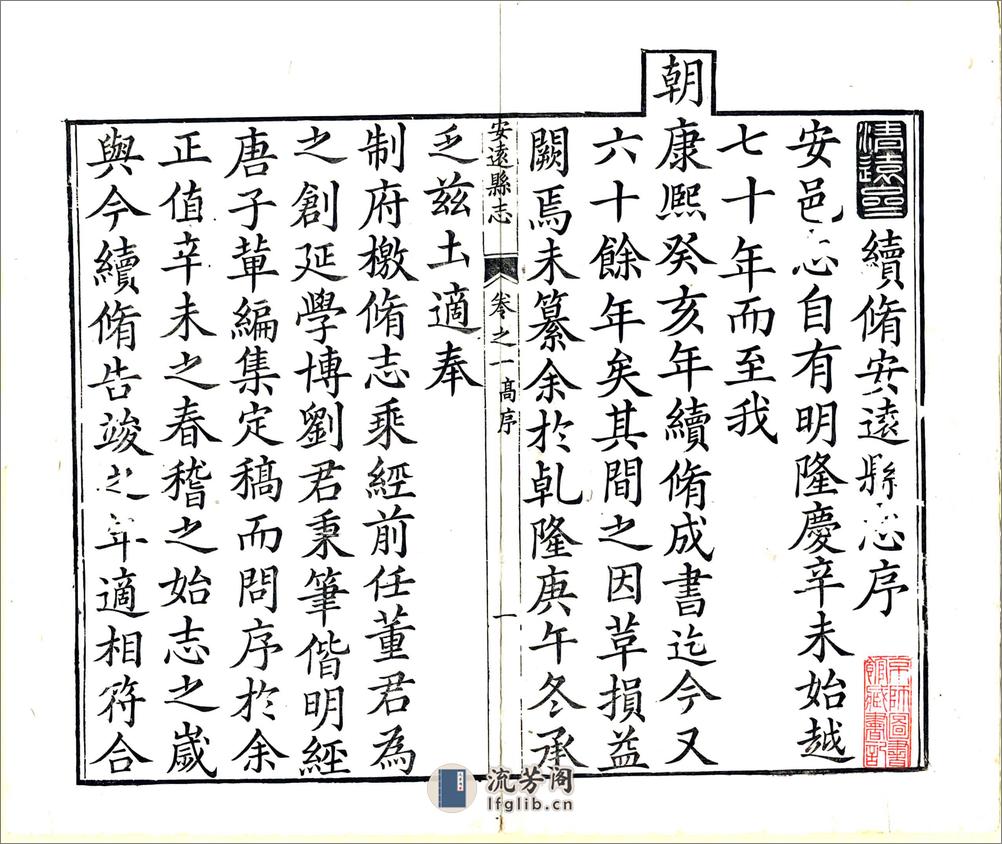 續脩安遠縣志序
安邑志自有明隆慶辛未始越
七十年而至我
朝
康熙癸亥年續脩成書迄今又
六十餘年矣其間之因革損益
闕焉未纂余於乹隆庚午冬承
安遠縣志
卷之一
高序
一
乏兹土適奉
制府檄脩志乘經前任董君為
之創延學博劉君秉筆偕明經
唐子軰編集定稿而問序於余
正值辛未之春稽之始志之嵗
與今續脩告竣之年適相符合
京師圖書
館藏書記
流芳阁
lfglib.cn